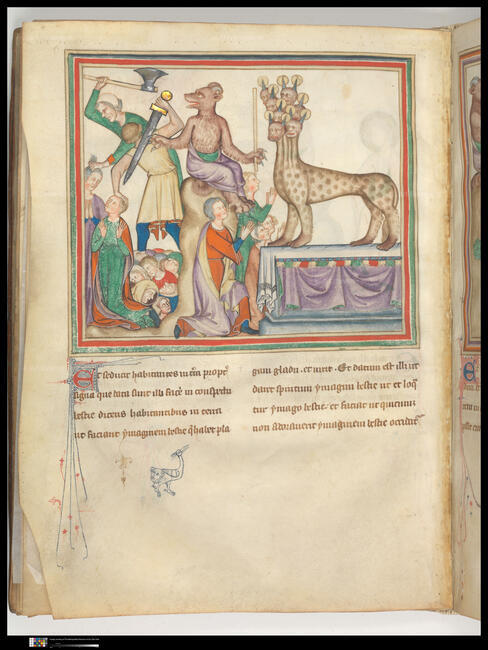 Et seduxit habitantes in t̄ra propt̄
signa que data sunt illi facē in conspectu
bestie dicens habitantibus in terra
ut faciant ymaginem bestie q̄ habet pla
gam gladii et uixit. Et datum est illi ut
daret spiritum ymagini bestie ut et loq̄
tur ymago bestie et faciat ut quicunq̄
non adorauerit ymaginem bestie occidat̄